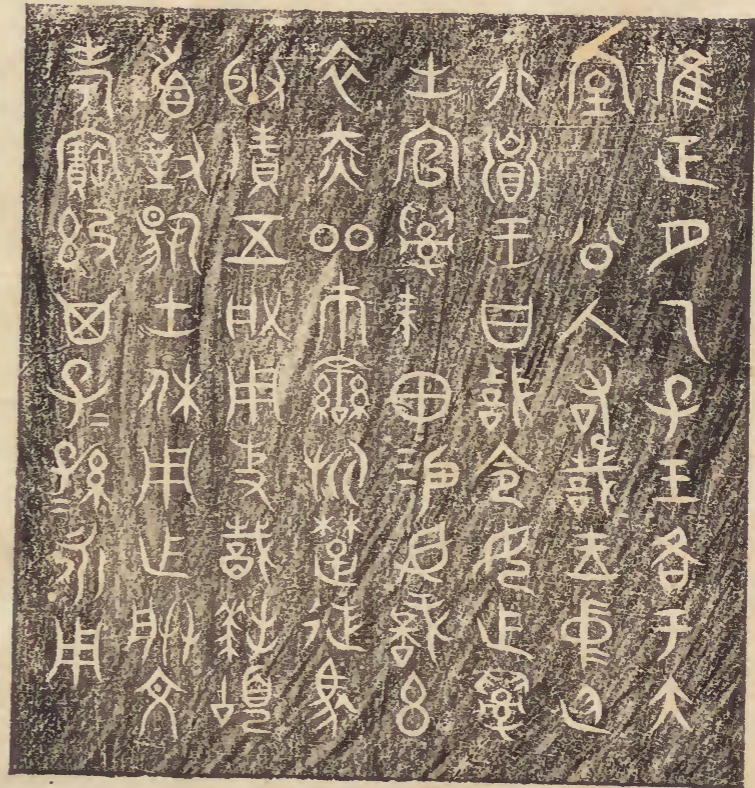 隹正月乙子王各于大
室公入右𢧜立中廷
北鄉王曰𢧜令女乍𤔲
土官𤔲耤田易女戠玄
衣赤市䜌旂楚徒馬
取五寽用事𢧜拜𩒨
首對揚王休用乍朕文
考寶𣪘其子=孫=永用